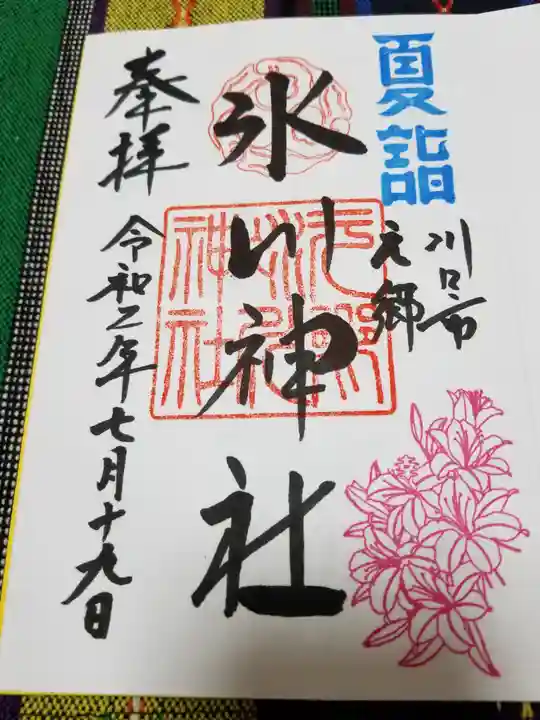 夏詣
川口市
元郷
氷川神社
奉拝
令和二年七月十九日
元郷氷川神社